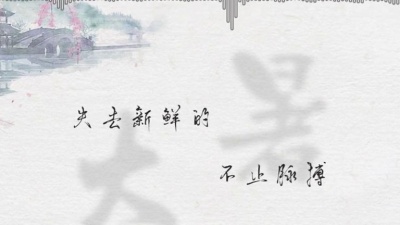 失去新鲜的
不止脉搏
大暑